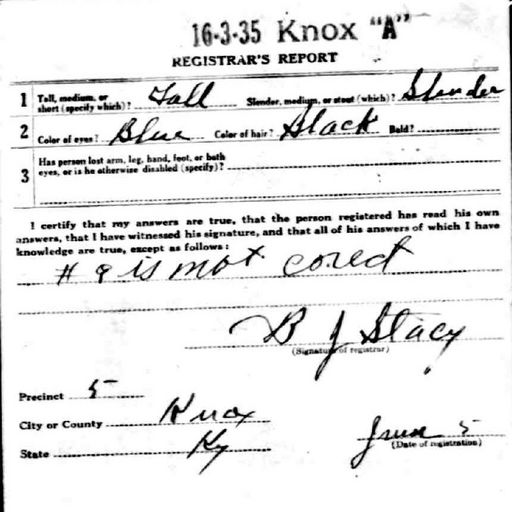 16-3-35 Knox "A"
REGISTRAR'S REPORT
1 Tall, medium, or short (specify which)? Tall Slender, medium, or stout (which)? Slender
2 Color of eyes? Blue Color of hair? Black Bald?
3 Has person lost arm, leg, hand, foot, or both eyes, or is he otherwise disabled (specify)?
I certify that my answers are true, that the person registered has read his own
answers, that I have witnessed his signature, and that all of his answers of which I have
knowledge are true, except as follows:
# 9 is not corect
B J Stacy
(Signature of registrar)
Precinct 5
City or County Knox
State Ky
June 5
(Date of registration)